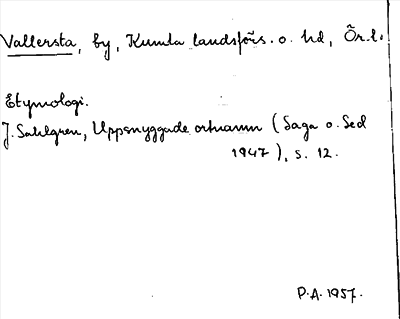 Vallersta, by, Kumla landsförs. o. hd, Ör. l.
Etymologi.
J. Sahlgren, Uppsnyggade ortnamn (Saga o. Sed
1947), s. 12.
P.A. 1957.